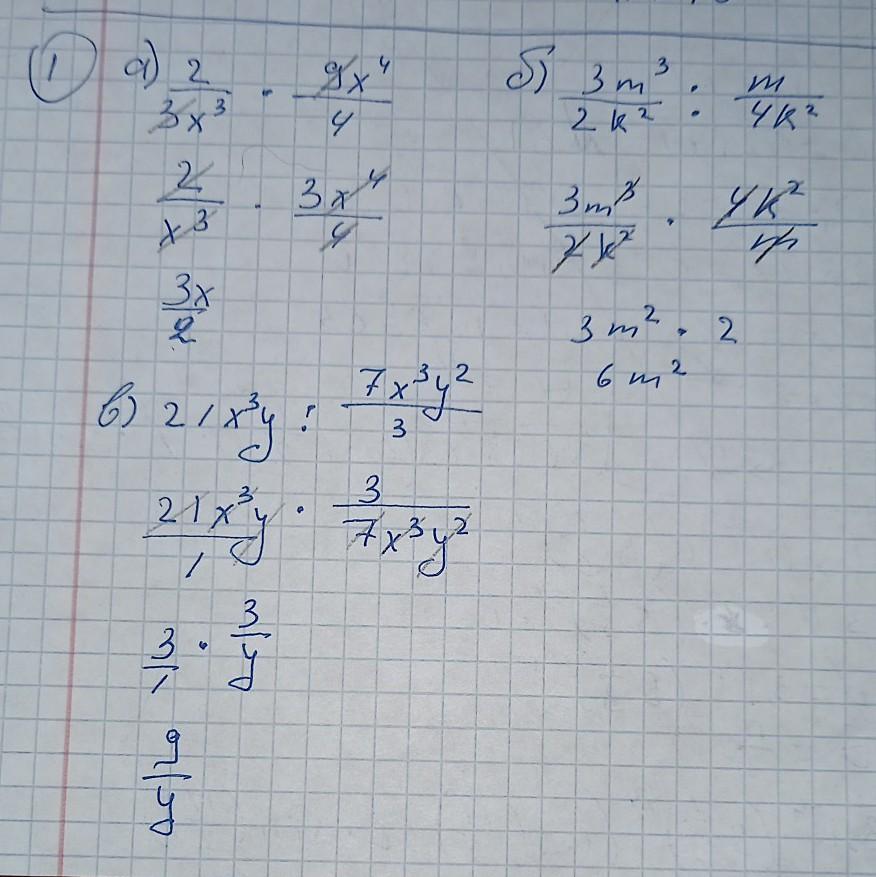 1 а) 2/3x³ · 9x⁴/4
2/x³ · 3x⁴/4
3x/2
б) 3m³/2k² : m/4k²
3m³/2k² · 4k²/m
3m² · 2
6m²
в) 21x³y : 7x³y²/3
21x³y/1 · 3/7x³y²
3/1 · 3/y
9/y